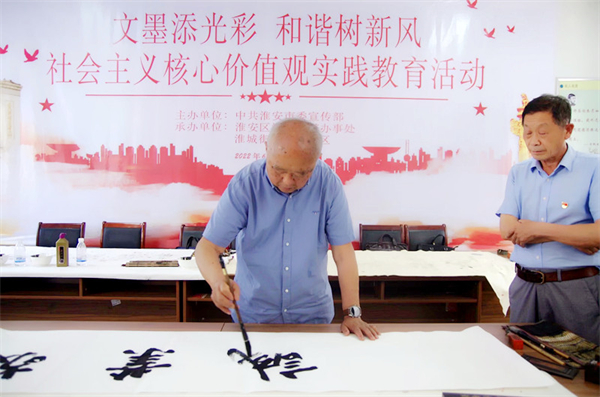 文墨添光彩 和谐树新风
社会主义核心价值观实践教育活动
主办单位：中共淮安市委宣传部
承办单位：淮安区 办事处
淮城街 区
2022年